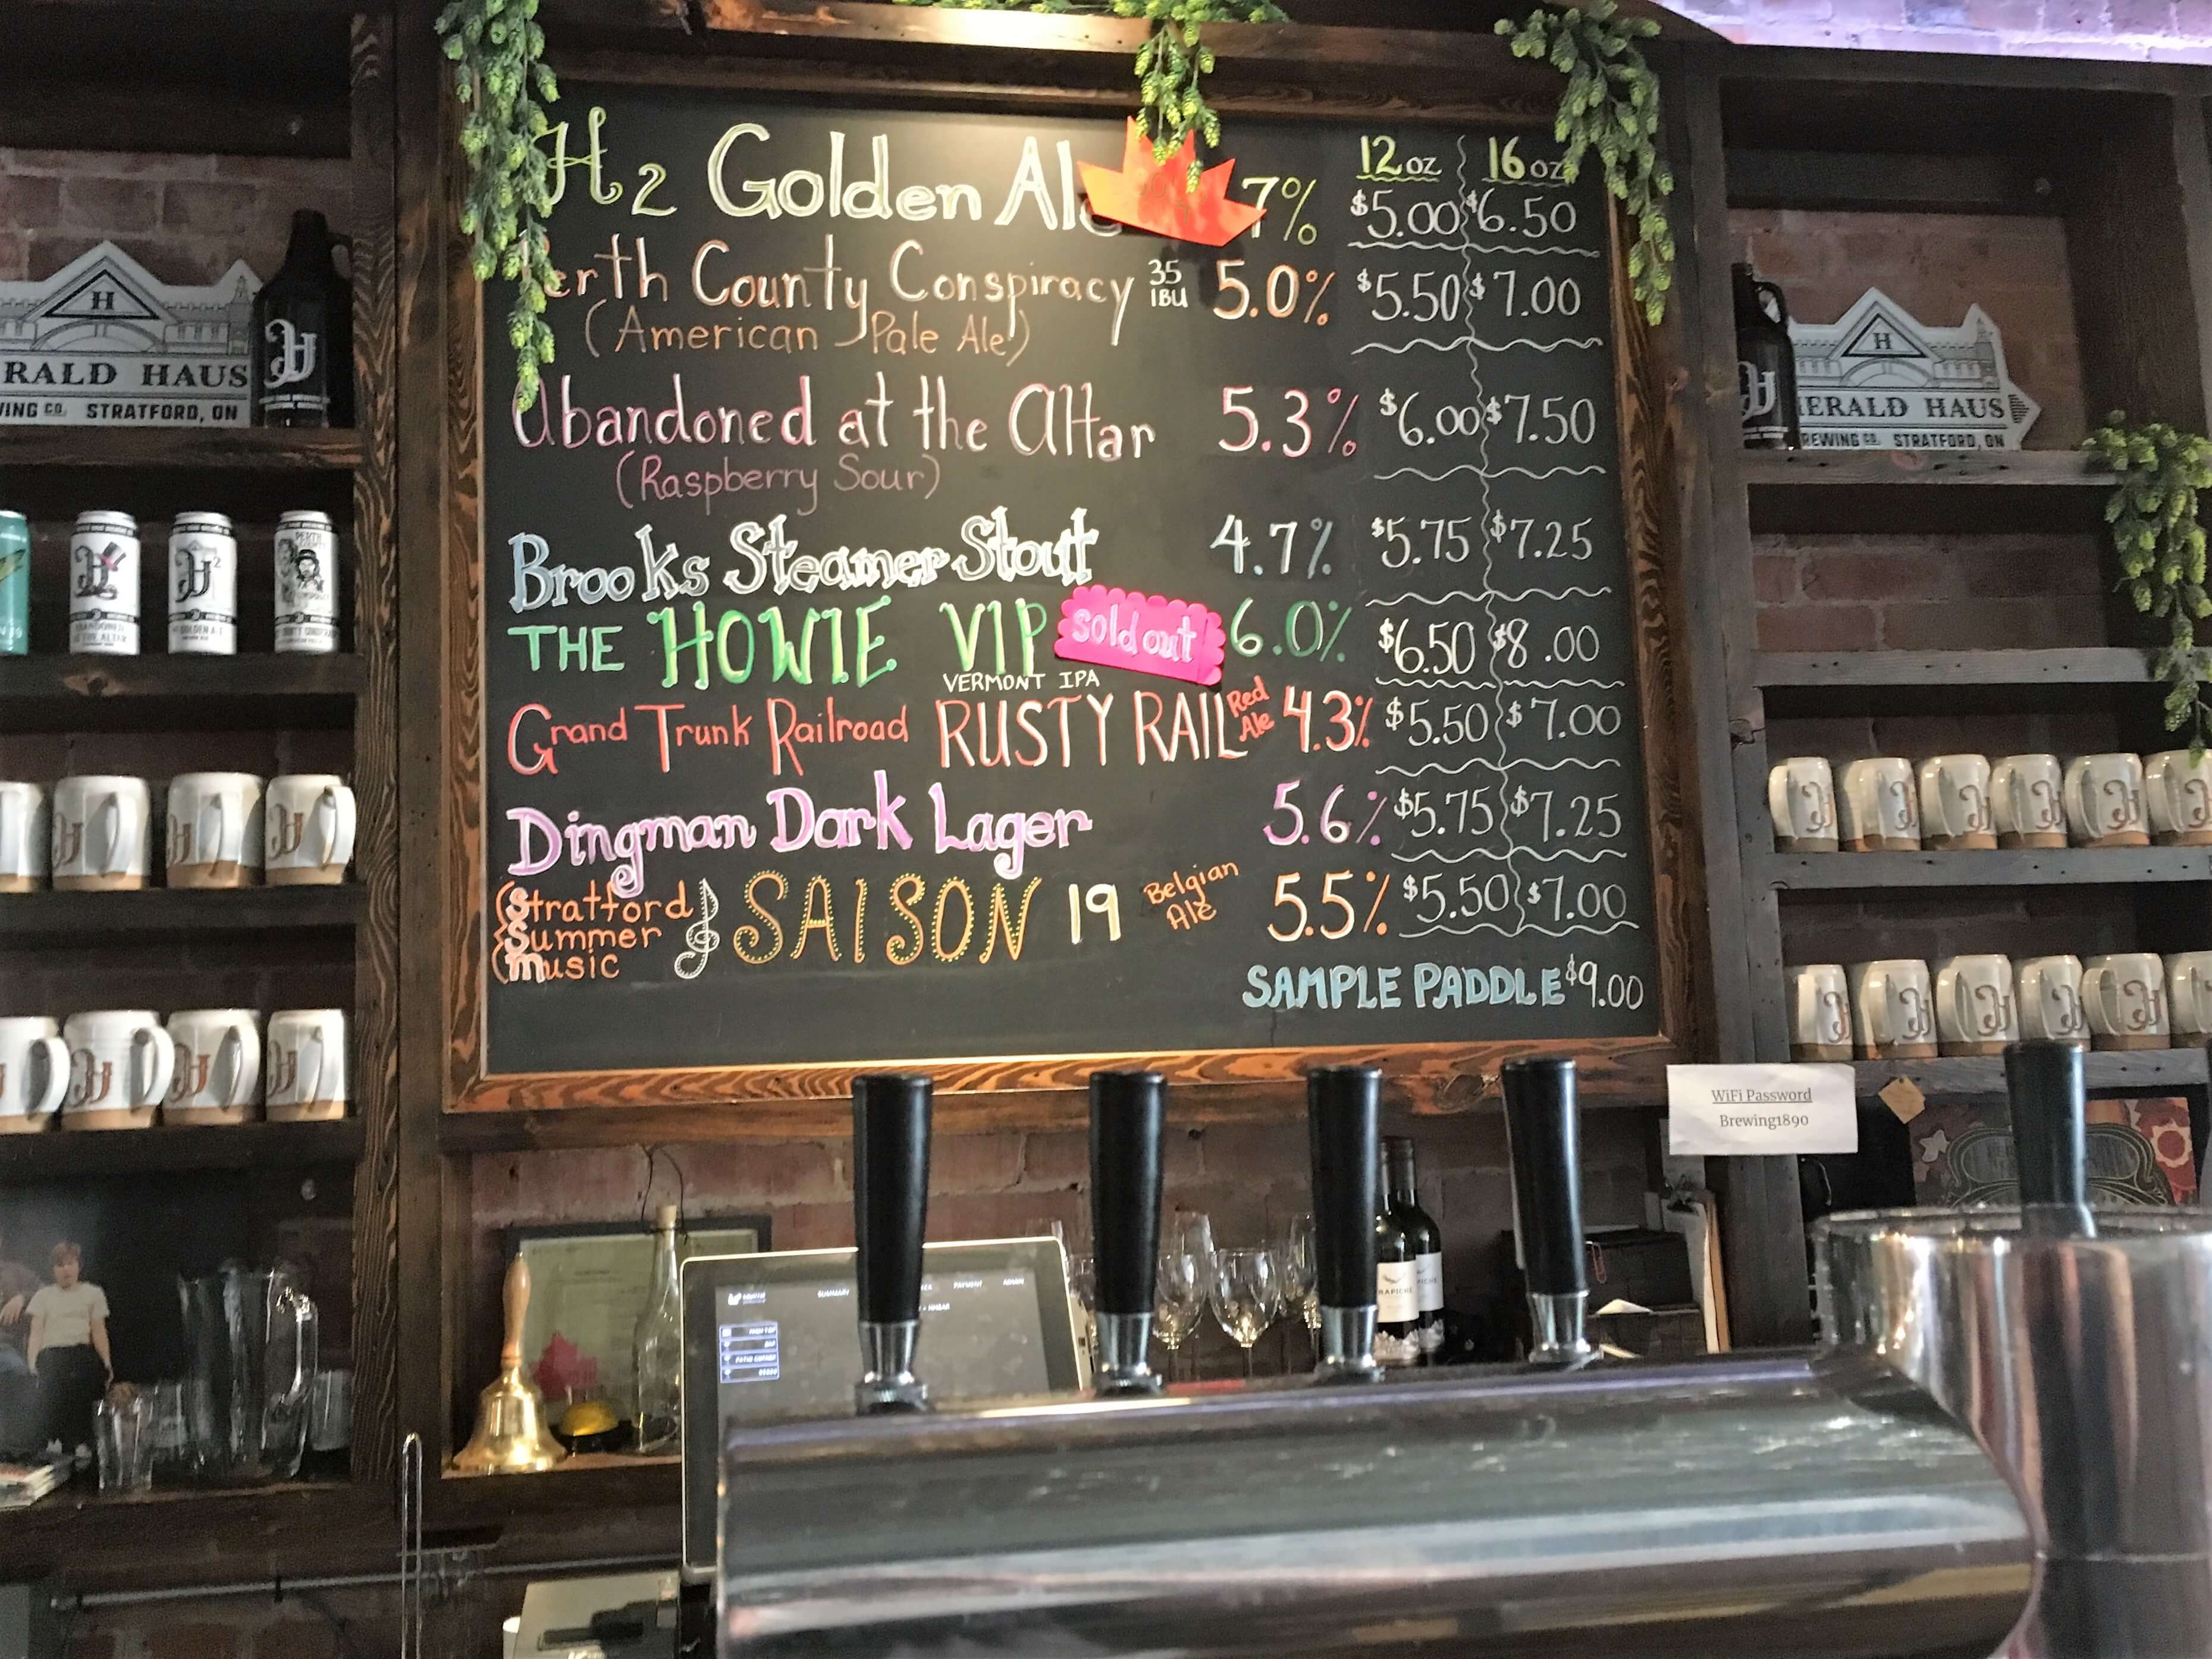 12oz 16oz
H2 Golden 7% $5.00 $6.50
County Conspiracy 35 IBU 5.0% $5.50 $7.00
(American Pale Ale)
Abandoned at the Altar 5.3% $6.00 $7.50
(Raspberry Sour)
Brooks Steamer Stout 4.7% $5.75 $7.25
THE HOWIE VIP sold out 6.0% $6.50 $8.00
VERMONT IPA
Grand Trunk Railroad RUSTY RAIL Red Ale 4.3% $5.50 $7.00
Dingman Dark Lager 5.6% $5.75 $7.25
Stratford Summer Music SAISON 19 Belgian Ale 5.5% $5.50 $7.00
SAMPLE PADDLE $9.00
H
HAUS
CO. STRATFORD, ON
H
HAUS
CO. STRATFORD, ON
WiFi Password
Brewing1890
SUMMARY
PAYMENT ADMIN